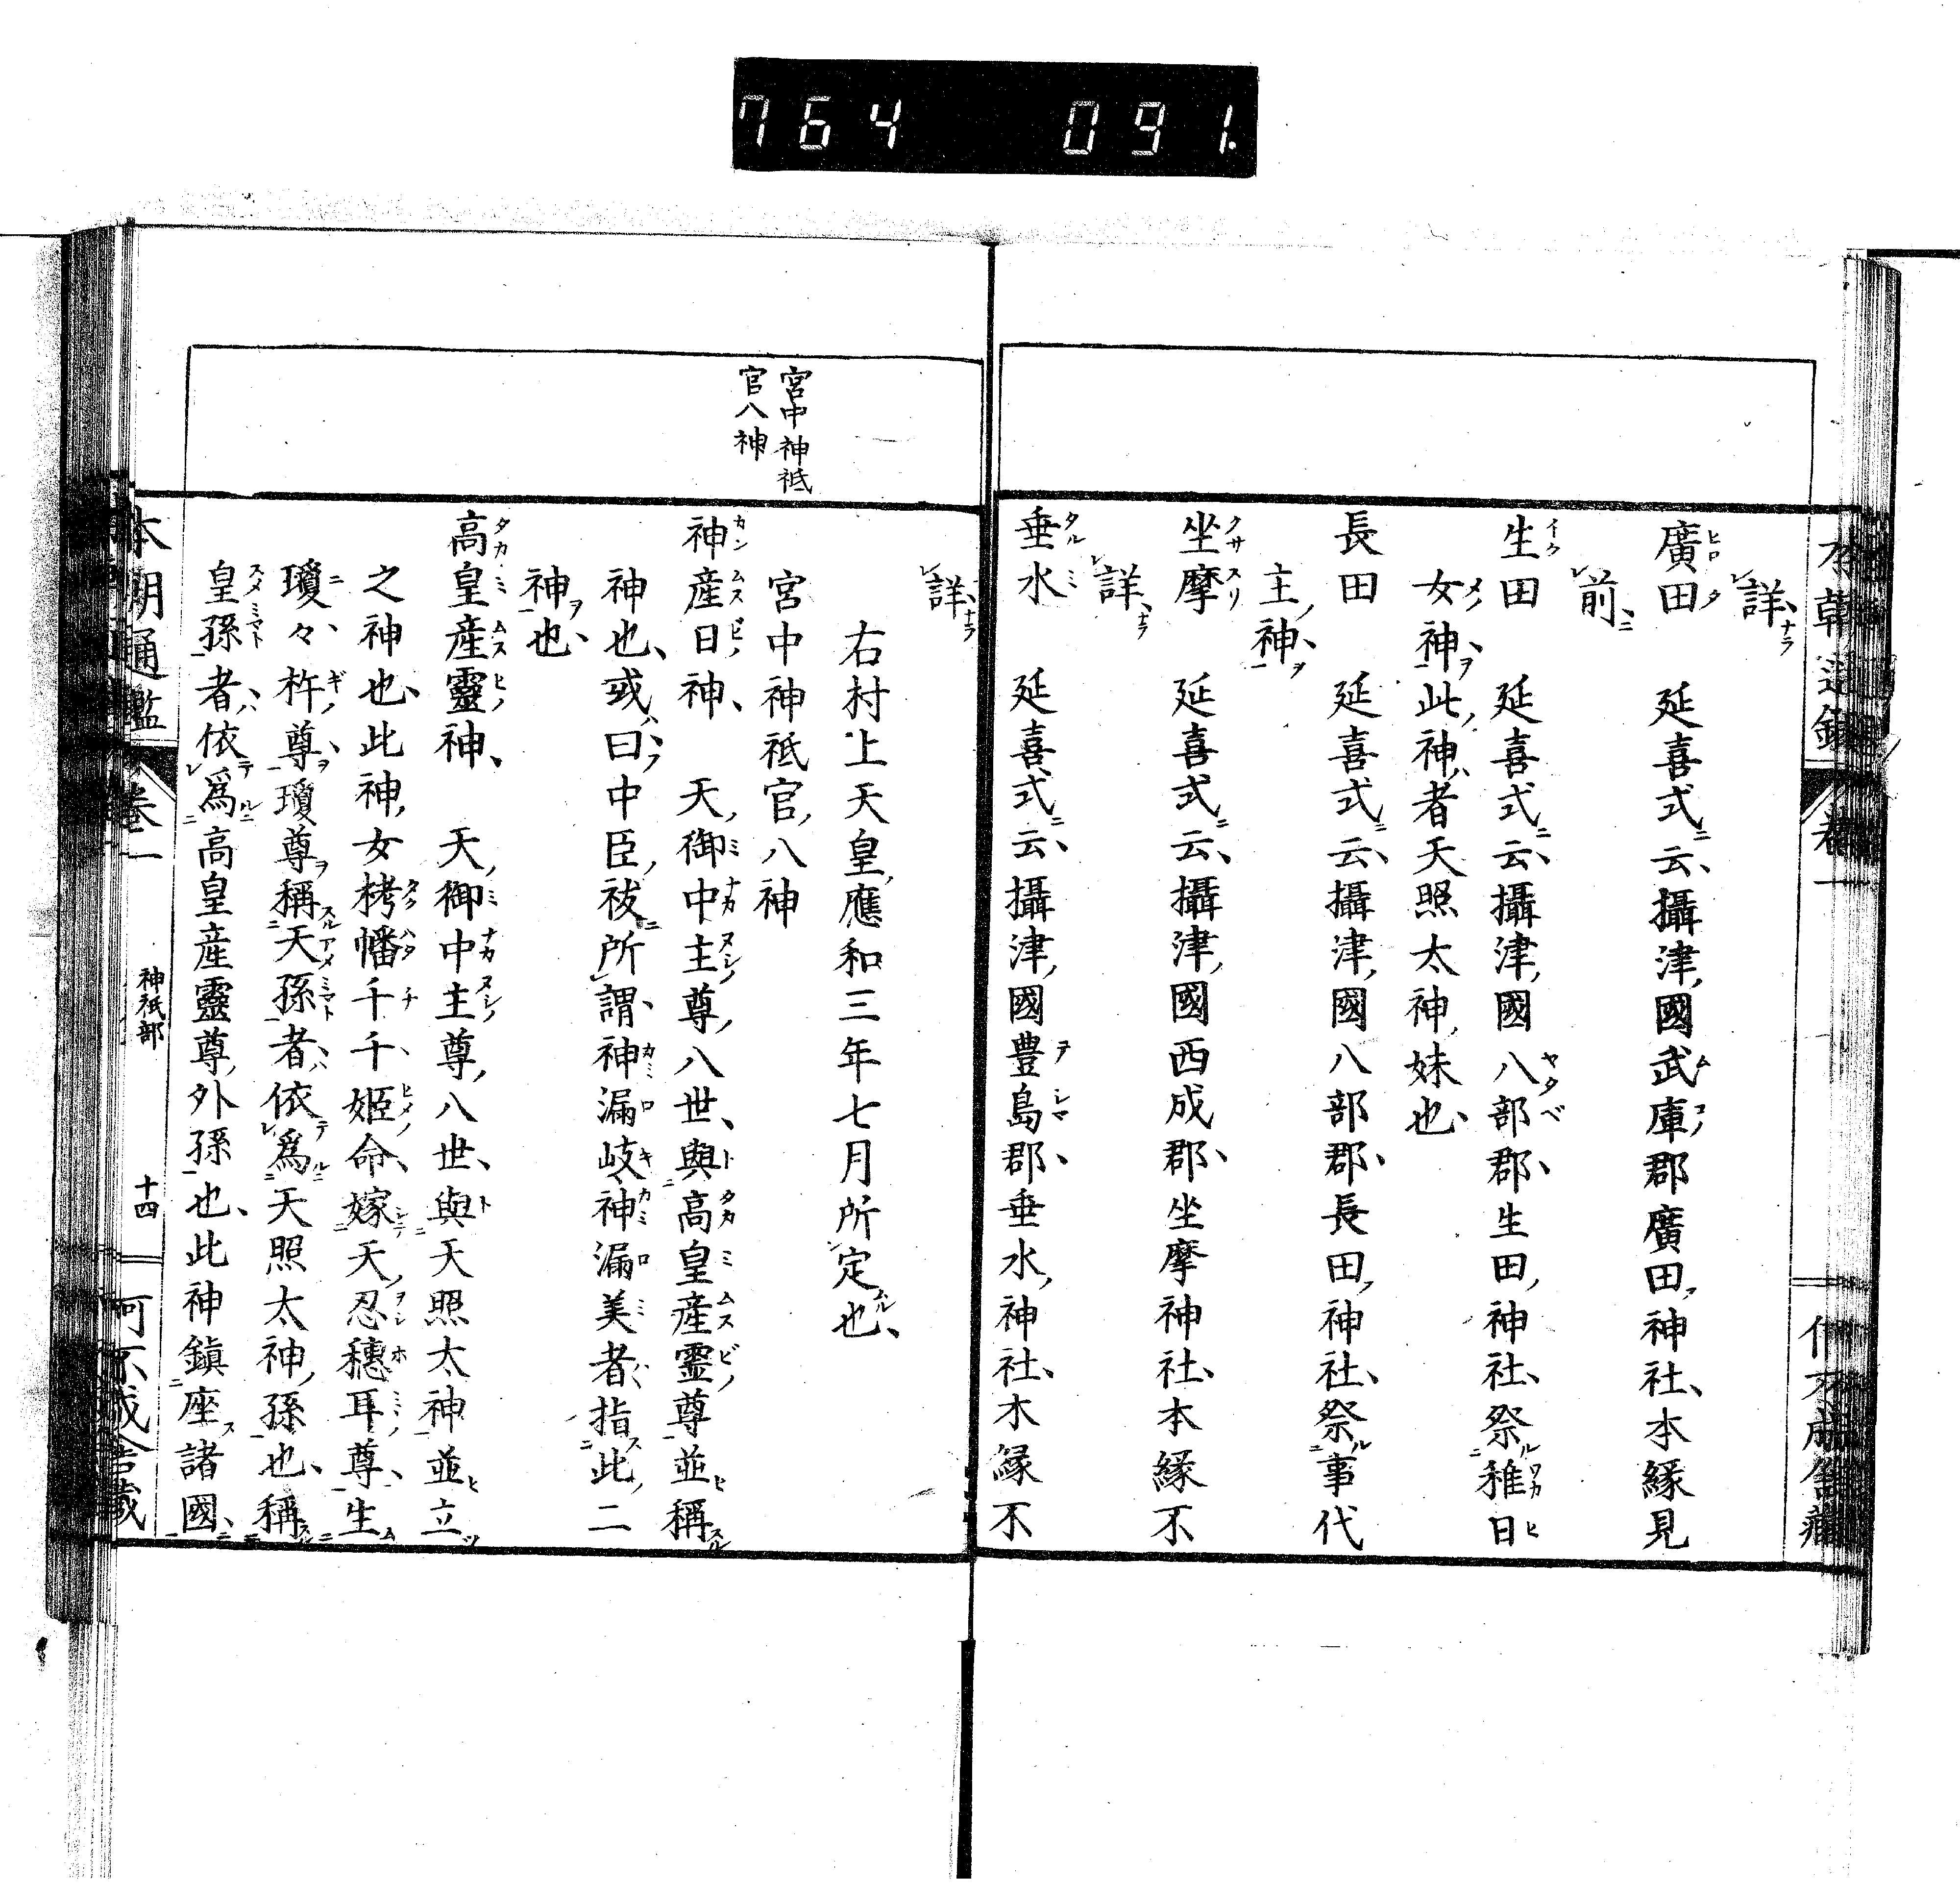 764 091.
詳
廣田 延喜式云、攝津國武庫郡廣田神社、本縁見
前
生田 延喜式云、攝津國八部郡生田神社、祭稚日
女神、此神者天照太神妹也、
長田 延喜式云、攝津國八部郡長田神社、祭事代
主神、
坐摩 延喜式云、攝津國西成郡坐摩神社、本縁不
詳
垂水 延喜式云、攝津國豊島郡垂水神社、木縁不
詳
右村上天皇應和三年七月所定也、
宮中神祇
官八神
宮中神祇官八神
神産日神、 天御中主尊八世、與高皇産霊尊並稱
神也、或曰中臣祓所謂神漏岐神漏美者指此二
神也、
高皇産靈神、 天御中主尊八世、與天照太神並立
之神也、此神女栲幡千千姫命、嫁天忍穗耳尊、生
瓊々杵尊、瓊尊稱天孫者、依爲天照太神孫也、稱
皇孫者、依爲高皇産靈尊外孫也、此神鎭座諸國
本朝通鑑 卷一 神祇部 十四